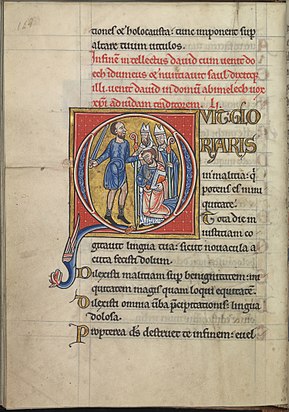 169
tiones et holocausta: tunc imponent sup
altare tuum uitulos.
Infinem intellectus dauid cum uenit do
ech idumeus et nuntiauit saul dixitq;
illi. uenit dauid in domum abimelech
LI.
QUID GLO
RIARIS
in malitia: q
potens es iniqui
tate.
Tota die in
iustitiam co
gitauit lingua tua: sicut nouacula
cuta fecisti dolum.
Dilexisti malitiam sup benignitatem: ini
quitatem magis quam loqui equitatem.
Dilexisti omnia uba pcipitationis: lingua
dolosa.
Propterea ds destruet te infinem: euel